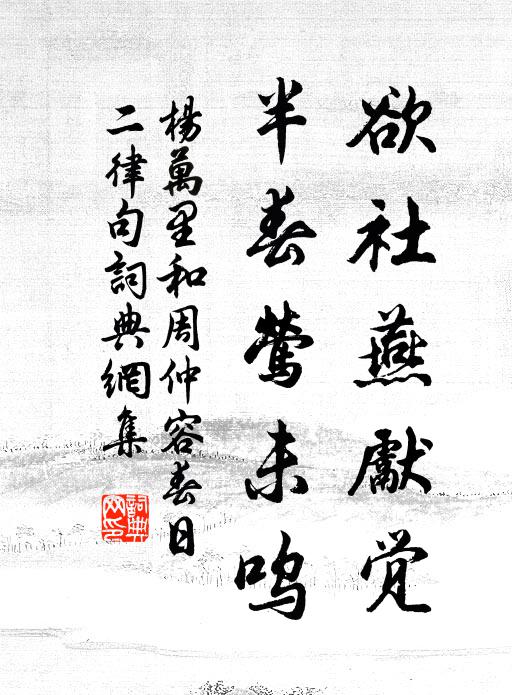 欲社燕獻觉
半春鶯未鸣
楊萬里和周仲容春日
二律句詞典網集
詞典
网印